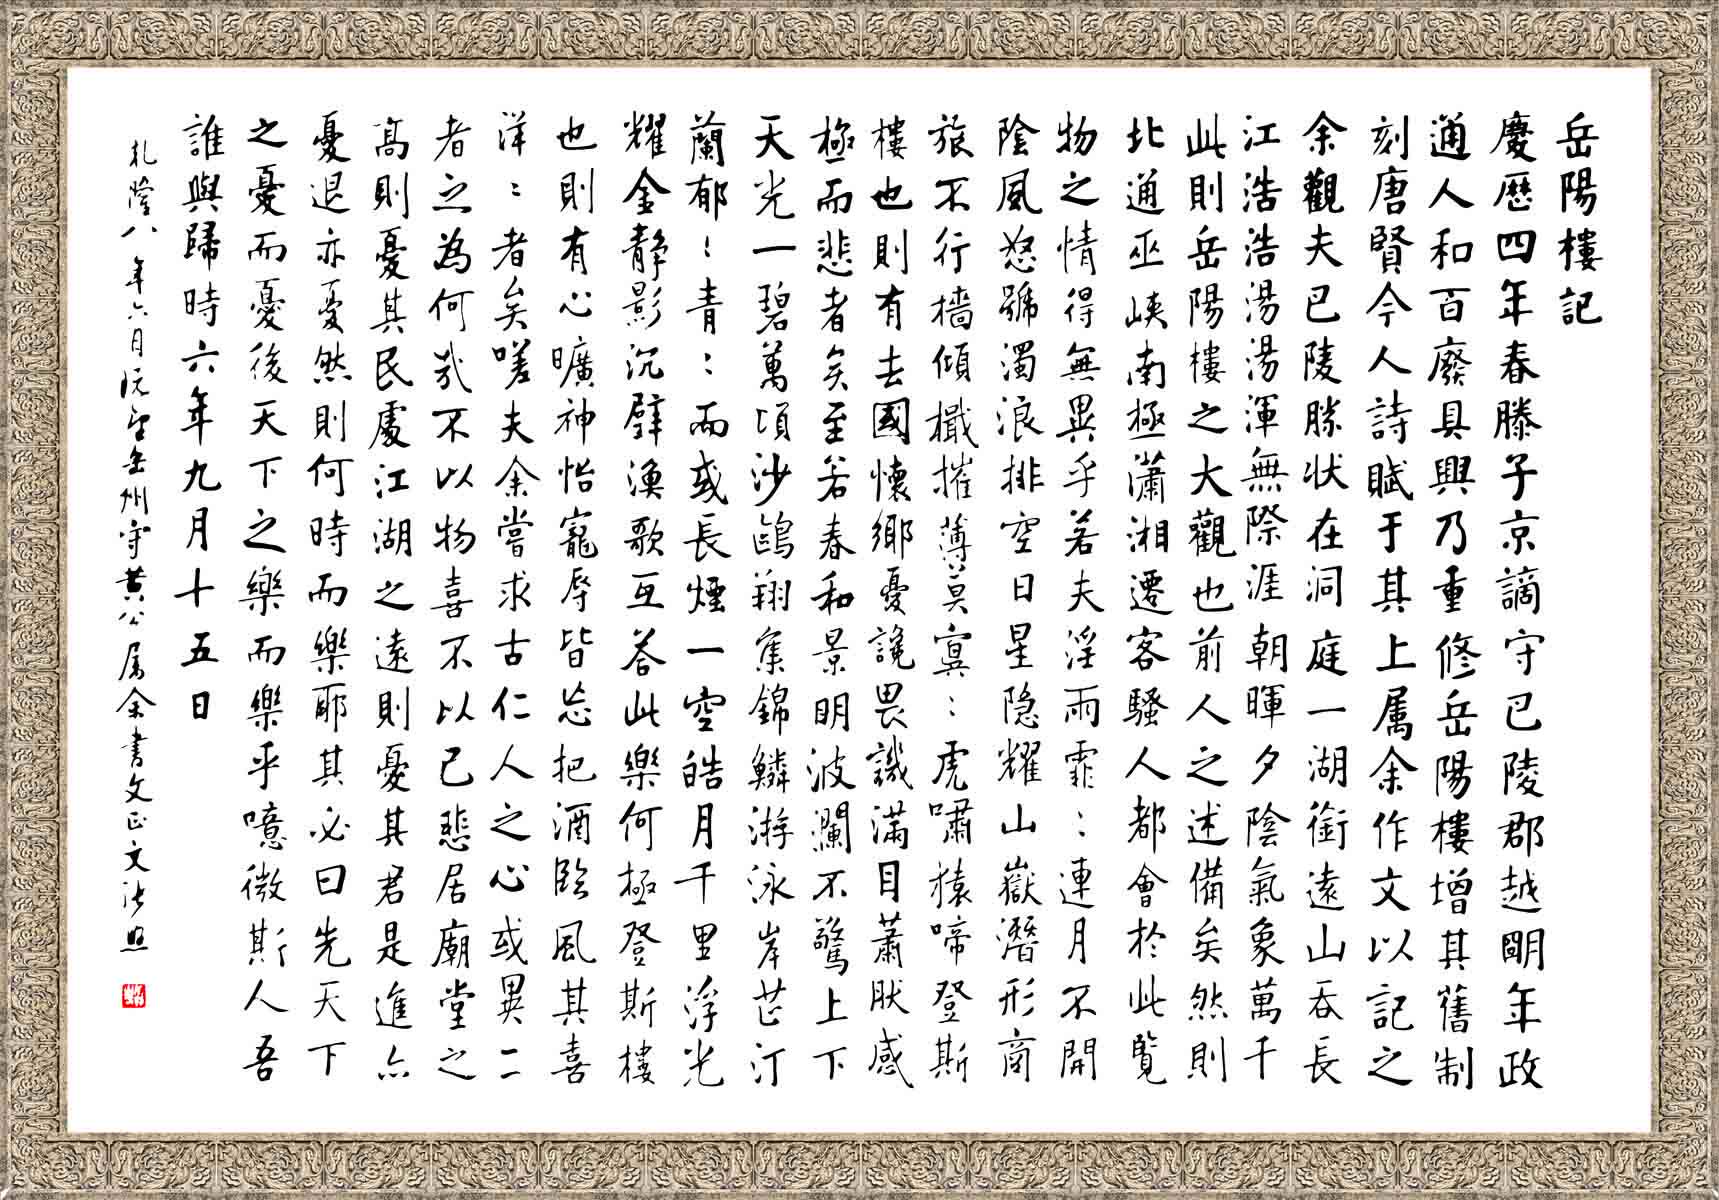 岳陽樓記
慶歷四年春滕子京謫守巴陵郡越明年政
通人和百廢具興乃重修岳陽樓增其舊制
刻唐賢今人詩賦于其上属余作文以記之
余觀夫巴陵勝状在洞庭一湖銜遠山吞長
江浩浩湯湯渾無際涯朝暉夕陰氣象萬千
此則岳陽樓之大觀也前人之述備矣然則
北通巫峽南極瀟湘遷客騷人都會於此覽
物之情得無異乎若夫淫雨霏〻連月不開
陰風怒號濁浪排空日星隐耀山嶽潛形商
旅不行檣傾檝摧薄莫冥〻虎嘯猿啼登斯
樓也則有去國懷鄉憂讒畏譏滿目蕭肰感
極而悲者矣至若春和景明波瀾不驚上下
天光一碧萬頃沙鷗翔集錦鱗游泳岸芷汀
蘭郁〻青〻而或長煙一空皓月千里浮光
耀金静影沉璧漁歌互答此樂何極登斯樓
也則有心曠神怡寵辱皆忘把酒臨風其喜
洋〻者矣嗟夫余嘗求古仁人之心或異二
者之為何哉不以物喜不以己悲居廟堂之
高則憂其民處江湖之遠則憂其君是進亦
憂退亦憂然則何時而樂耶其必曰先天下
之憂而憂後天下之樂而樂乎噫微斯人吾
誰與歸時六年九月十五日
乾隆八年六月岳州守黄公属余書文正文張照